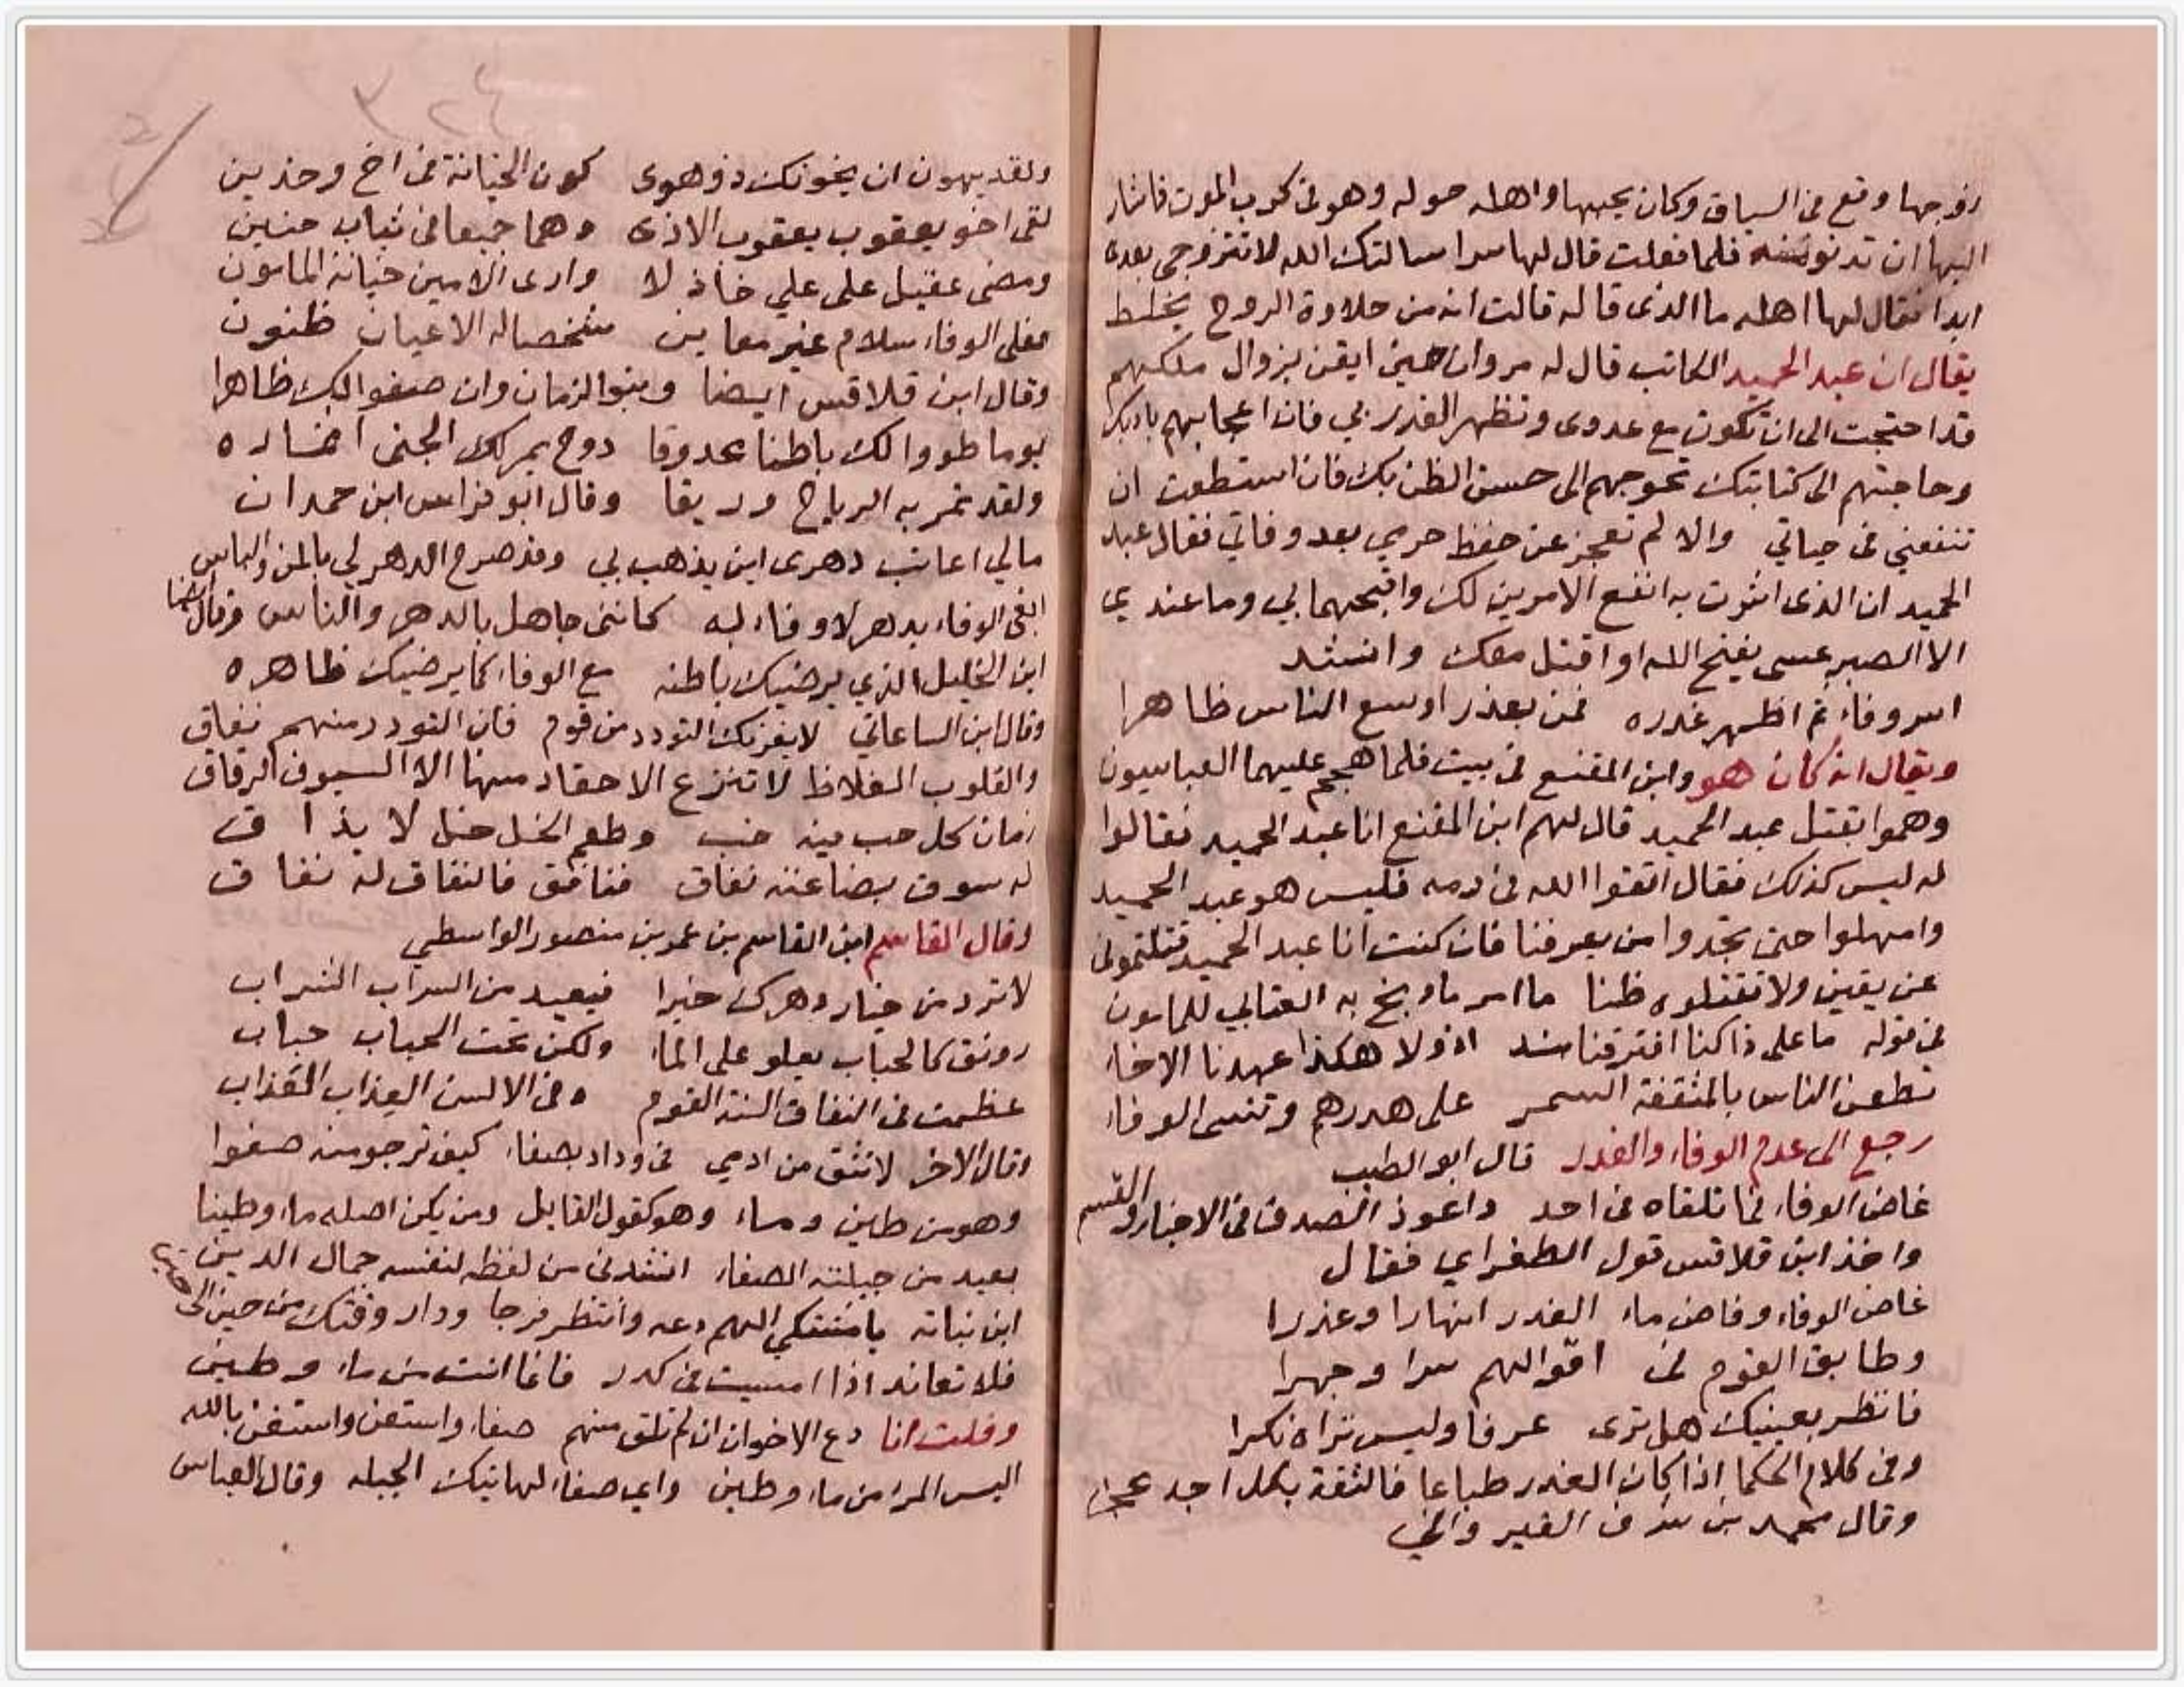 زوجها وقع في السياق وكان يحبها واهله حوله وهو في كرب الموت فاشار
اليها ان تدنو منه فلما فعلت قال لها سرا سالتك الله لا تتزوجي بعدى
ابدا فقال لها اهله ما الذى قاله قالت انه من حلاوة الروح يخلط
يقال ان عبد الحميد الكاتب قال له مروان حين ايقن بزوال ملكهم
قد احتجت الى ان تكون مع عدوى وتظهر الغدر بي فان اعجابهم بادبك
وحاجتهم الى كتابتك تحوجهم الى حسن الظن بك فان استطعت ان
تنفعني في حياتي والا لم تعجز عن حفظ حرمي بعد وفاتي فقال عبد
الحميد ان الذى اشرت به انفع الامرين لك واقبحهما بي وما عندي
الا الصبر عسى يفتح الله او اقتل معك وانشد
اسر وفاء ثم اظهر غدره فمن بعذر اوسع الناس ظاهرا
ويقال انه كان هو وابن المقنع في بيت فلما هجم عليهما العباسيون
وهموا بقتل عبد الحميد قال لهم ابن المقنع انا عبد الحميد فقالوا
له ليس كذلك فقال اتقوا الله في دمه فليس هو عبد الحميد
وامهلوا حتى تجدوا من يعرفنا فان كنت انا عبد الحميد قتلتمونى
عن يقين ولا تقتلوه ظنا ما امر ما وبخ به العتابي للمامون
في قوله ما على ذا كنا افترقنا اذ ولا هكذا عهدنا الاخاء
تطعن الناس بالمثقفة السمر على هدرهم وتنسى الوفاء
رجع الى عدم الوفاء والغدر قال ابو الطيب
غاض الوفاء فما تلقاه في احد واعوز الصدق في الاخبار والقسم
واخذ ابن قلاقس قول الطغراي فقال
غاض الوفاء وفاض ماء الغدر انهارا وغدرا
وطابق القوم في اقوالهم سرا وجهرا
فانظر بعينيك هل ترى عرفا وليس تراه نكرا
وفي كلام الحكما اذا كان الغدر طباعا فالثقة بكل احد عجز
وقال محمد بن شرف القيرواني
ولقد يهون ان يخونك ذو هوى كون الخيانة في اخ وخدين
لقى اخو يعقوب يعقوب الاذى وهما جميعا في ثياب جنين
ومضى عقيل على علي خاذلا وارى الامين خيانة المامون
فعلى الوفاء سلام غير معاين شخصا له الاعيان ظنون
وقال ابن قلاقس ايضا وبنو الزمان وان صفوا لك ظاهرا
يوما طووا لك باطنا دوح يمر لك الجنى اخضاره
ولقد تمر به الرياح وريقا وقال ابو فراس ابن حمدان
مالي اعاتب دهرى اين يذهب بي وقد صرح الدهر لي بالمن والياس
ابغى الوفاء بدهر لا وفاء له كانني جاهل بالدهر والناس وقال ايضا
اين الخليل الذي يرضيك باطنه مع الوفاء كما يرضيك ظاهره
وقال ابن الساعاتي لا يغرنك التودد من قوم فان التودد منهم نفاق
والقلوب الغلاظ لا تنزع الاحقاد منها الا السيوف الرقاق
زمان كل حب فيه خب وطعم الخل خل لا يذاق
له سوق بضاعته نفاق فنافق فالنفاق له نفاق
وقال القاسم ابن القاسم بن عمر بن منصور الواسطي
لا ترد من خيار دهرك خيرا فبعيد من السراب الشراب
رونق كالحباب يعلو على الماء ولكن تحت الحباب حباب
عظمت في النفاق السنة القوم وفي الالسن العذاب العذاب
وقال الاخر لا تثق من ادمي في وداد بصفاء كيف ترجو منه صفوا
وهو من طين وماء وهو كقول القايل ومن يكن اصله ماء وطينا
بعيد من جبلته الصفاء انشدنى من لفظه لنفسه جمال الدين
ابن نباته يا مشتكي الهم دعه وانتظر فرجا ودار وقتك من حين الى حين
فلا تعاند اذا امسيت في كدر فانما انت من ماء وطين
وقلت انا دع الاخوان ان لم تلق منهم صفاء واستعن واستغن بالله
اليس المرء من ماء وطين واي صفاء لهاتيك الجبله وقال العباس